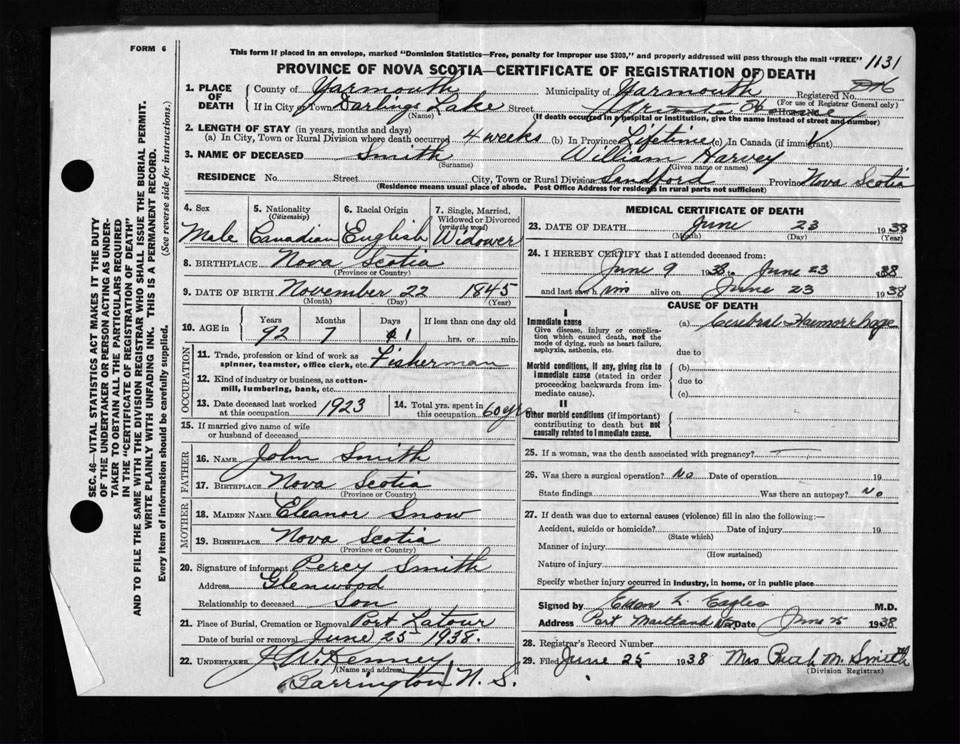 FORM 6
This form if placed in an envelope, marked "Dominion Statistics—Free, penalty for improper use $300," and properly addressed will pass through the mail "FREE" 1131
PROVINCE OF NOVA SCOTIA—CERTIFICATE OF REGISTRATION OF DEATH
1. PLACE OF DEATH County of Yarmouth Municipality of Yarmouth Registered No.
(For use of Registrar General only)
If in City or Town Darlings Lake Street
(Name) (If death occurred in a hospital or institution, give the name instead of street and number)
2. LENGTH OF STAY (in years, months and days)
(a) In City, Town or Rural Division where death occurred 4 weeks (b) In Province Lifetime (c) In Canada (if immigrant)
3. NAME OF DECEASED Smith William Harvey
(Surname) (Given name or names)
RESIDENCE No. Street City, Town or Rural Division Sandford Province Nova Scotia
(Residence means usual place of abode. Post Office Address for residents in rural parts not sufficient)
4. Sex Male
5. Nationality (Citizenship) Canadian
6. Racial Origin English
7. Single, Married, Widowed or Divorced (write the word) Widower
8. BIRTHPLACE Nova Scotia
(Province or Country)
9. DATE OF BIRTH November 22 1845
(Month) (Day) (Year)
10. AGE in Years Months Days If less than one day old
92 7 1 hrs. or min.
OCCUPATION
11. Trade, profession or kind of work as spinner, teamster, office clerk, etc. Fisherman
12. Kind of industry or business, as cotton-mill, lumbering, bank, etc.
13. Date deceased last worked at this occupation 1923
14. Total yrs. spent in this occupation 60 yrs
15. If married give name of wife or husband of deceased
FATHER
16. NAME John Smith
17. BIRTHPLACE Nova Scotia
(Province or Country)
MOTHER
18. MAIDEN NAME Eleanor Snow
19. BIRTHPLACE Nova Scotia
(Province or Country)
20. Signature of informant Percy Smith
Address Glenwood
Relationship to deceased Son
21. Place of Burial, Cremation or Removal Port Latour
Date of burial or removal June 25 1938.
22. UNDERTAKER J. W. Kenney
(Name and address)
Barrington N. S.
MEDICAL CERTIFICATE OF DEATH
23. DATE OF DEATH June 23 1938
(Month) (Day) (Year)
24. I HEREBY CERTIFY that I attended deceased from:
June 9 1938 to June 23 1938
and last saw him alive on June 23 1938
CAUSE OF DEATH
I
Immediate cause (a) Cerebral Haemorrhage
Give disease, injury or complication which caused death, not the mode of dying, such as heart failure, asphyxia, asthenia, etc.
due to
Morbid conditions, if any, giving rise to immediate cause (stated in order proceeding backwards from immediate cause).
(b)
due to
(c)
II
Other morbid conditions (if important) contributing to death but not causally related to immediate cause.
25. If a woman, was the death associated with pregnancy?
26. Was there a surgical operation? No Date of operation 19
State findings Was there an autopsy? No
27. If death was due to external causes (violence) fill in also the following:—
Accident, suicide or homicide? Date of injury 19
(State which)
Manner of injury
(How sustained)
Nature of injury
Specify whether injury occurred in industry, in home, or in public place
Signed by L. Eagles M.D.
Address Port Maitland N.S. Date June 25 1938
28. Registrar's Record Number
29. Filed June 25 1938 Mrs M. Smith
(Division Registrar)
SEC. 46—VITAL STATISTICS ACT MAKES IT THE DUTY
OF THE UNDERTAKER OR PERSON ACTING AS UNDER-
TAKER TO OBTAIN ALL THE PARTICULARS REQUIRED
IN THE "CERTIFICATE OF REGISTRATION OF DEATH"
AND TO FILE THE SAME WITH THE DIVISION REGISTRAR WHO SHALL ISSUE THE BURIAL PERMIT.
WRITE PLAINLY WITH UNFADING INK. THIS IS A PERMANENT RECORD.
Every item of information should be carefully supplied. (See reverse side for instructions.)